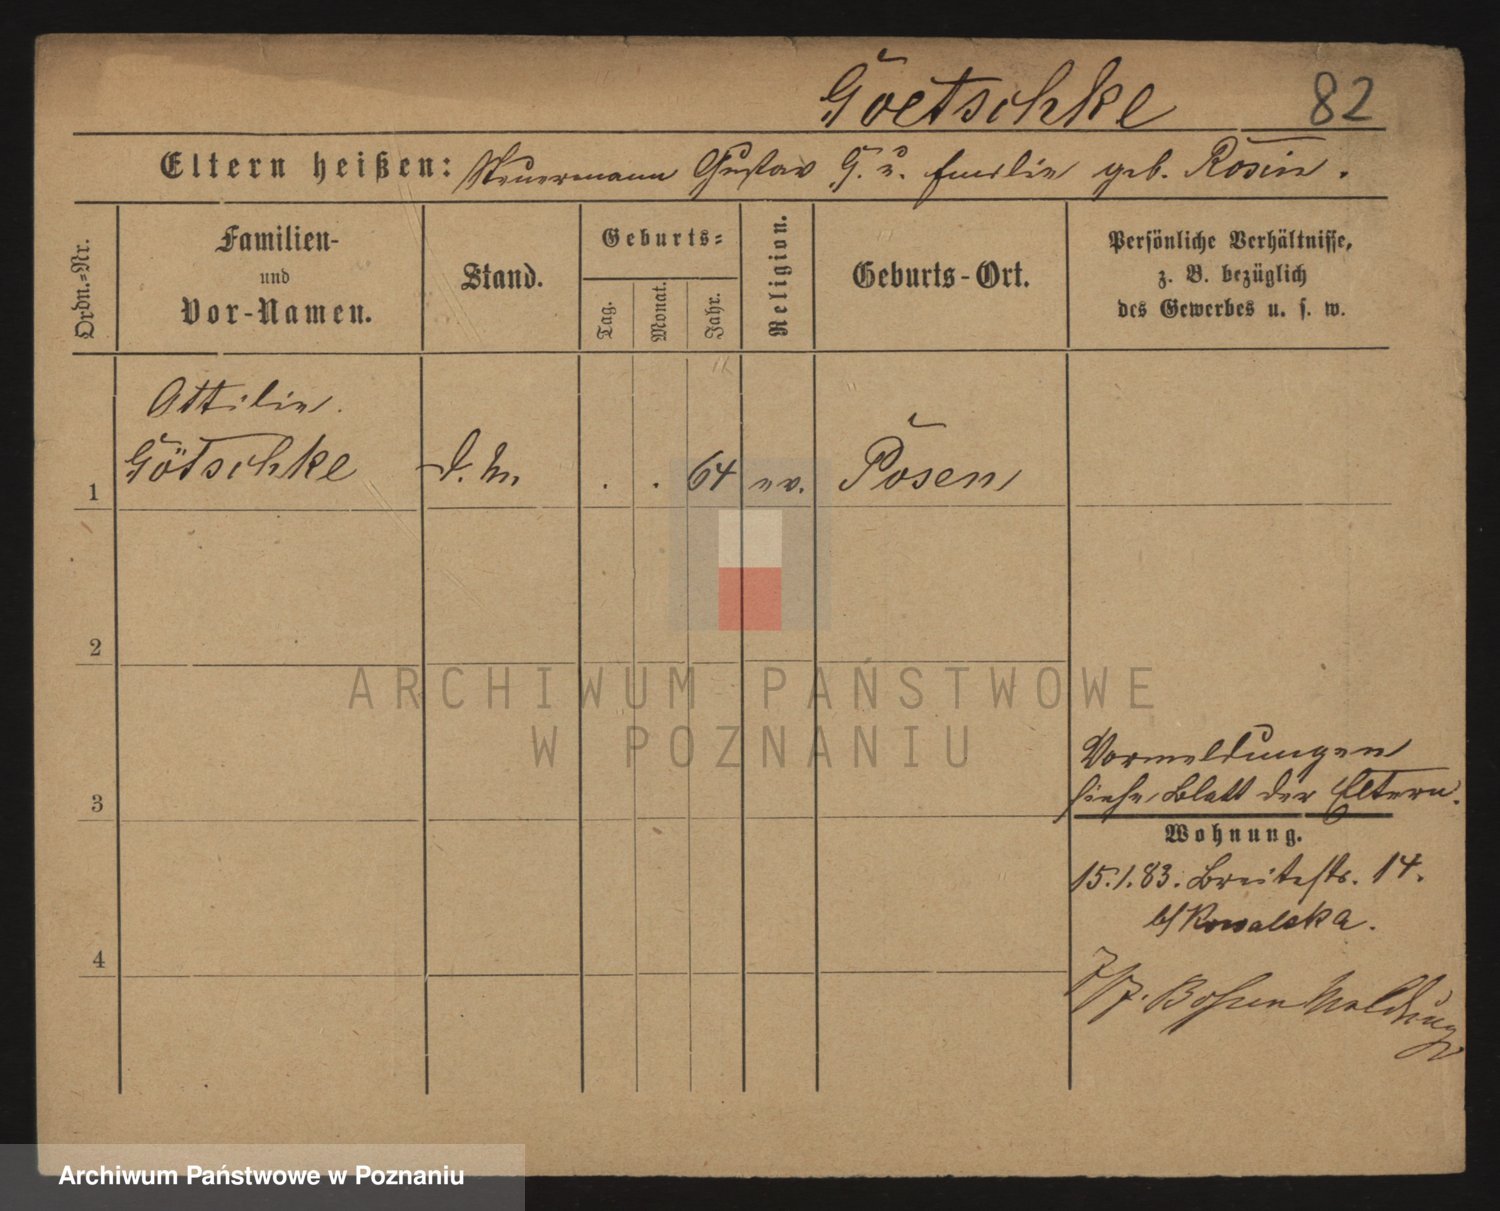 Goetschke 82
Eltern heißen: Steuermann Gustav G. u. Emilie geb. Rosin.
Ordn.-Nr.
Familien-
und
Vor-Namen.
Stand.
Geburts-
Tag.
Monat.
Jahr.
Religion.
Geburts-Ort.
Persönliche Verhältnisse,
z. B. bezüglich
des Gewerbes u. s. w.
Ottilie.
1 Götschke d. M. . . 64 ev. Posen
2
ARCHIWUM PAŃSTWOWE
W POZNANIU
Vormeldungen
3 siehe Blatt der Eltern.
Wohnung.
15.1.83. Breitestr. 14.
b/ Kowalska.
4
7/7. Meldung
Archiwum Państwowe w Poznaniu